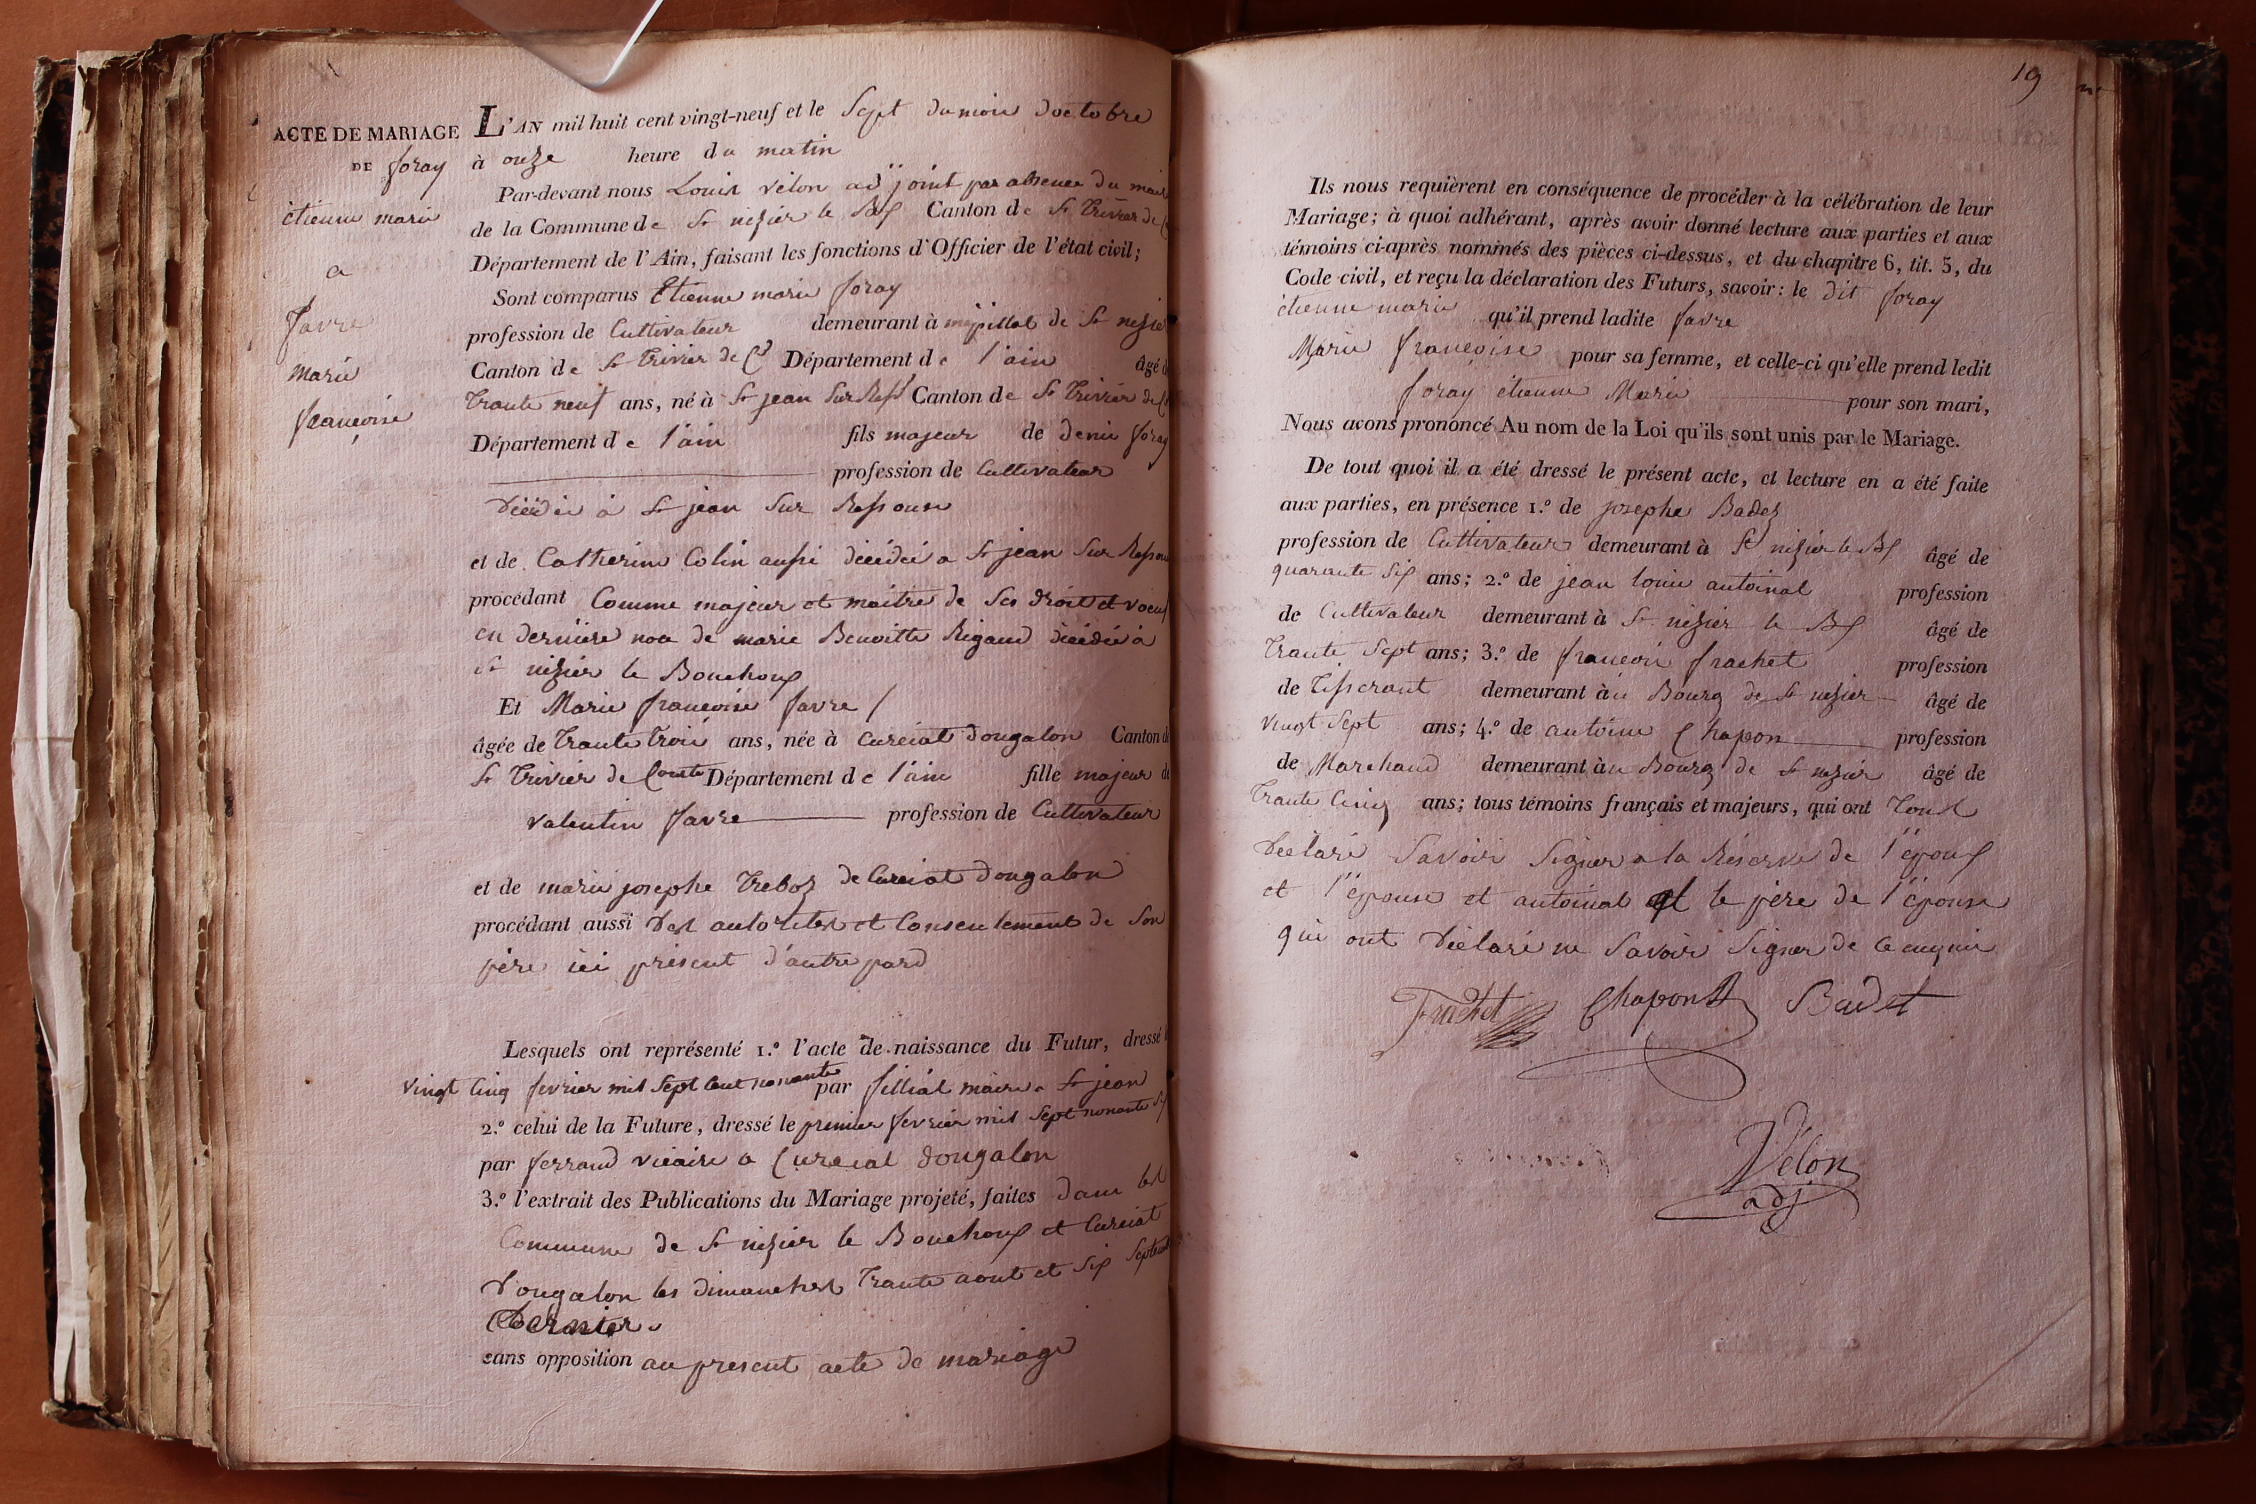 ACTE DE MARIAGE
DE foray
étienne marie
a
favre
marie
françoise
L'AN mil huit cent vingt-neuf et le Sept du mois doctobre
à onze heure du matin
Par-devant nous Louis velon adjoint par absence du maire
de la Commune de St nizier le Bx Canton de St Trivier de C
Département de l'Ain, faisant les fonctions d'Officier de l'état civil;
Sont comparus Etienne marie foray
profession de Cultivateur demeurant à de St nizier
Canton de St Trivier de Cs Département de l'ain âgé d
Trante neuf ans, né à St jean Sur Ress Canton de St Trivier de C
Département de l'ain fils majeur de denis foray
profession de Cultivateur
décédé à St jean Sur Ressouse
et de Catherine Colin aussi décédée a St jean Sur Resso
procédant Comme majeur et maitre de Ses droits et
en dernière noce de marie Benoitte Rigaud décédée à
St nizier le Bouchoux
Et Marie françoise favre /
âgée de Trante Trois ans, née à Curciat dongalon Canton d
St Trivier de Courtes Département de l'ain fille majeur de
valentin favre profession de Cultivateur
et de marie josephe Treboz de Curciat dongalon
procédant aussi des autorités et Consentement de Son
père ici présent d'autre pard
Lesquels ont représenté 1.º l'acte de naissance du Futur, dressé l
vingt Cinq fevrier mil Sept Cent nonante par maire a St jean
2.º celui de la Future, dressé le premier fevrier mil Sept nonante Six
par ferraud vicaire a Curciat dongalon
3.º l'extrait des Publications du Mariage projeté, faites dans les
Commune de St nizier le Bouchoux et Curciat
Dongalon les dimanches Trante aout et Six Septembre
Dernier.
sans opposition au present acte de mariage
19
Ils nous requièrent en conséquence de procéder à la célébration de leur
Mariage; à quoi adhérant, après avoir donné lecture aux parties et aux
témoins ci-après nommés des pièces ci-dessus, et du chapitre 6, tit. 5, du
Code civil, et reçu la déclaration des Futurs, savoir: le dit foray
étienne marie qu'il prend ladite favre
Marie françoise pour sa femme, et celle-ci qu'elle prend ledit
foray étienne Marie pour son mari,
Nous avons prononcé Au nom de la Loi qu'ils sont unis par le Mariage.
De tout quoi il a été dressé le présent acte, et lecture en a été faite
aux parties, en présence 1.º de josephe Badez
profession de Cultivateur demeurant à St nizier le Bx âgé de
quarante Six ans; 2.º de jean louis antoinat profession
de Cultivateur demeurant à St nizier le Bx âgé de
Trante Sept ans; 3.º de françois frachet profession
de Tisserant demeurant àu Bourg de St nizier âgé de
vingt Sept ans; 4.º de antoine Chapon profession
de Marchand demeurant àu Bourg de St nizier âgé de
Trante Cinq ans; tous témoins français et majeurs, qui ont Tous
Déclaré Savoir Signer a la Réserve de l'époux
et l'épouse et antoinat et le père de l'épouse
qui ont Déclaré ne Savoir Signer de ce enquis
Frachet Chapon Badet
Velon
adj